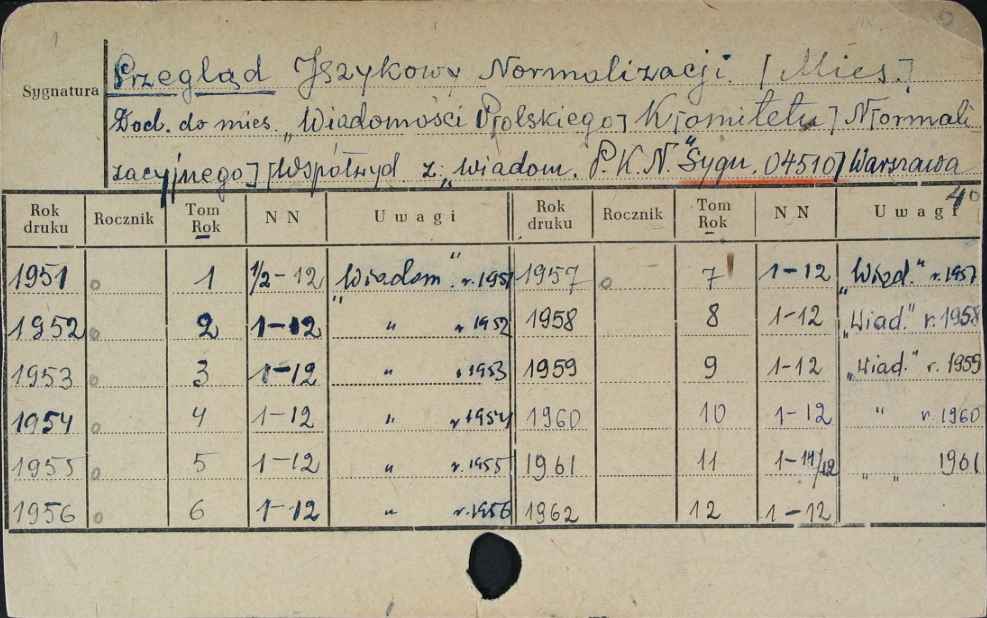 Sygnatura
Przegląd Językowy Normalizacji. [Mies.]
Dod. do mies. „Wiadomości P[olskiego] K[omitetu] N[ormali
zacyjnego] [Współwyd. z „Wiadom. P.K.N." Sygn. 04510] Warszawa
4°
Rok druku Rocznik Tom Rok N N Uwagi Rok druku Rocznik Tom Rok N N Uwagi
1951 o 1 1/2-12 „Wiadom." r. 1951 1957 o 7 1-12 „Wiad." r. 1957
1952 o 2 1-12 " r 1952 1958 8 1-12 „Wiad." r. 1958
1953 o 3 1-12 " r 1953 1959 9 1-12 „Wiad." r. 1959
1954 o 4 1-12 " r 1954 1960 10 1-12 " r. 1960
1955 o 5 1-12 " r. 1955 1961 11 1-11/12 " " 1961
1956 o 6 1-12 " r. 1956 1962 12 1-12